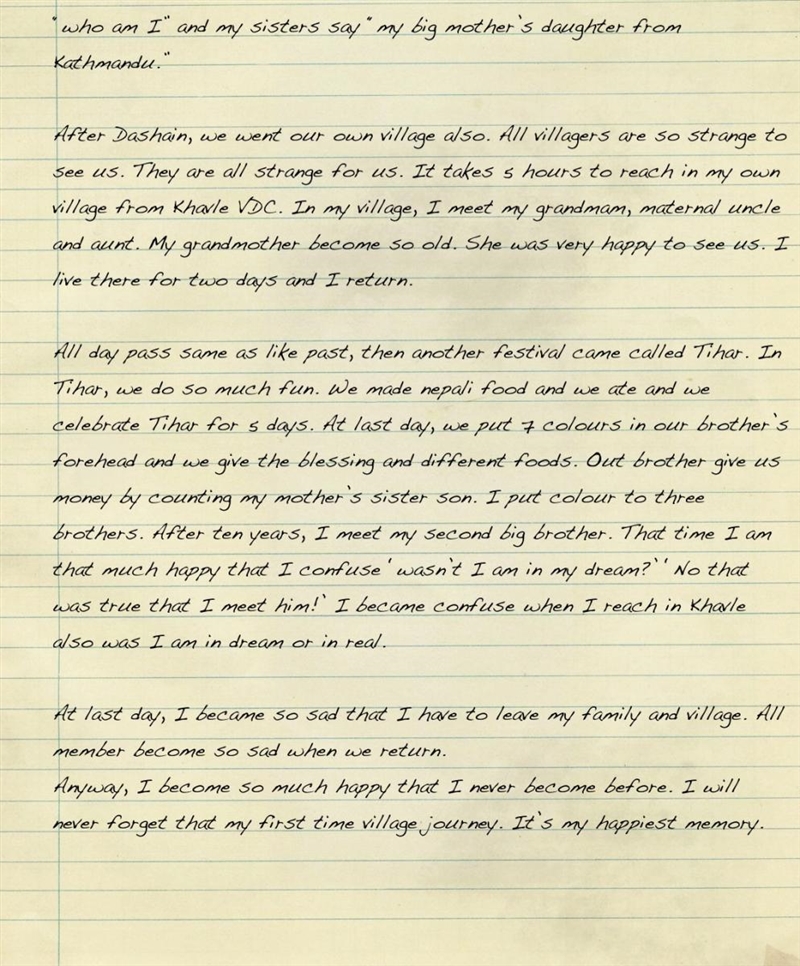 "who am I" and my sisters say "my big mother's daughter from
Kathmandu."
After Dashain, we went our own village also. All villagers are so strange to
see us. They are all strange for us. It takes 5 hours to reach in my own
village from Khavle VDC. In my village, I meet my grandmam, maternal uncle
and aunt. My grandmother become so old. She was very happy to see us. I
live there for two days and I return.
All day pass same as like past, then another festival came called Tihar. In
Tihar, we do so much fun. We made nepali food and we ate and we
celebrate Tihar for 5 days. At last day, we put 7 colours in our brother's
forehead and we give the blessing and different foods. Out brother give us
money by counting my mother's sister son. I put colour to three
brothers. After ten years, I meet my second big brother. That time I am
that much happy that I confuse 'wasn't I am in my dream?' 'No that
was true that I meet him!' I became confuse when I reach in Khavle
also was I am in dream or in real.
At last day, I became so sad that I have to leave my family and village. All
member become so sad when we return.
Anyway, I become so much happy that I never become before. I will
never forget that my first time village journey. It's my happiest memory.